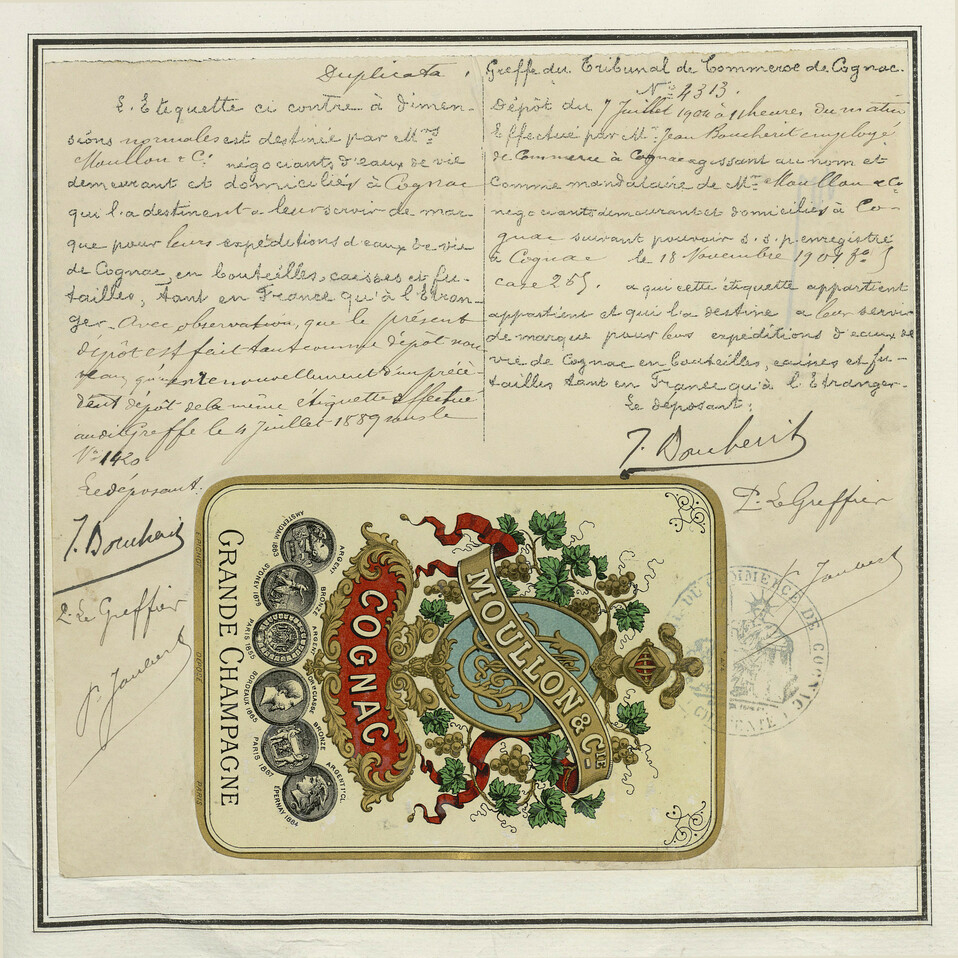 Duplicata.
L'Etiquette ci contre à dimen-
sions normales est destinée par Mrs
Moullon & Cie négociants d'eaux de vie
demeurant et domiciliés à Cognac
qui l'a destinent a leur servir de mar-
que pour leurs expéditions d'eaux de vie
de Cognac, en bouteilles, caisses et fu-
tailles, tant en France qu'à l'Etran-
ger. Avec observation, que le présent
dépôt est fait tant comme dépôt nou-
veau, qu'en renouvellement d'un précé-
dent dépôt de la même étiquette effectué
audit Greffe le 4 Juillet 1889 sous le
No 1420
Le déposant.
J. Boucherit
P. Le Greffier
Greffe du Tribunal de Commerce de Cognac.
No 4313.
Dépôt du 7 Juillet 1904 à 11 heures du matin
Effectué par Mr Jean Boucherit employé
de Commerce à Cognac agissant au nom et
comme mandataire de Mrs Moullon & Co
négociants demeurant et domiciliés à Co-
gnac suivant pouvoir s.s.p. enregistré
à Cognac le 18 Novembre 1901 fo
case 265. a qui cette étiquette appartient
appartient et qui l'a destine a leur servir
de marque pour leurs expéditions d'eaux de
vie de Cognac en bouteilles, caisses et fu-
tailles tant en France qu'à l'Etranger.
Le déposant:
J. Boucherit
P. Le Greffier
MOULLON & CIE
COGNAC
AMSTERDAM 1883
ARGENT
SYDNEY 1879
BRONZE
PARIS 1885
ARGENT
BORDEAUX 1885
OR 1e CLASSE
PARIS 1867
BRONZE
EPERNAY 1884
ARGENT 1e CL.
GRANDE CHAMPAGNE
DÉPOSÉ
PARIS
DU COMMERCE DE COGNAC